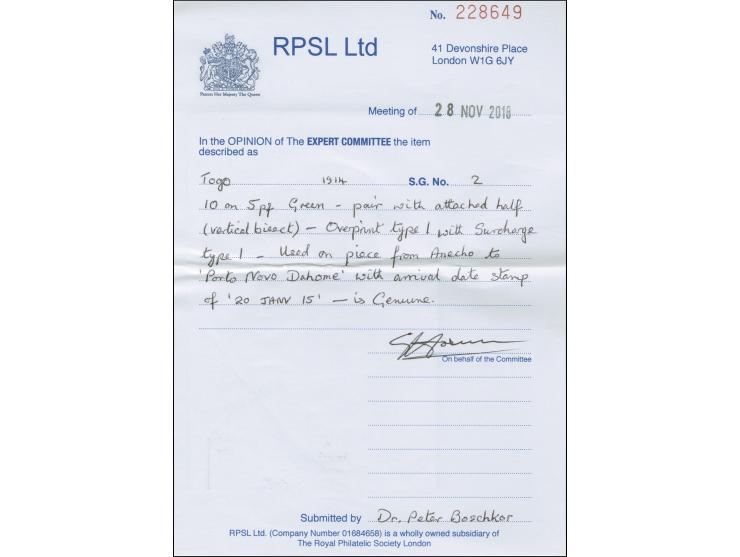 No. 228649
RPSL Ltd
41 Devonshire Place
London W1G 6JY
Patron Her Majesty The Queen
Meeting of 28 NOV 2018
In the OPINION of The EXPERT COMMITTEE the item
described as
Togo 1914 S.G. No. 2
10 on 5pf Green - pair with attached half
(vertical bisect) - Overprint type 1 with Surcharge
type 1 - Used on piece from Anecho to
'Porto Novo Dahome' with arrival date stamp
of '20 JANV 15' - is Genuine.
On behalf of the Committee
Submitted by Dr. Peter Boschkor
RPSL Ltd. (Company Number 01684658) is a wholly owned subsidiary of
The Royal Philatelic Society London